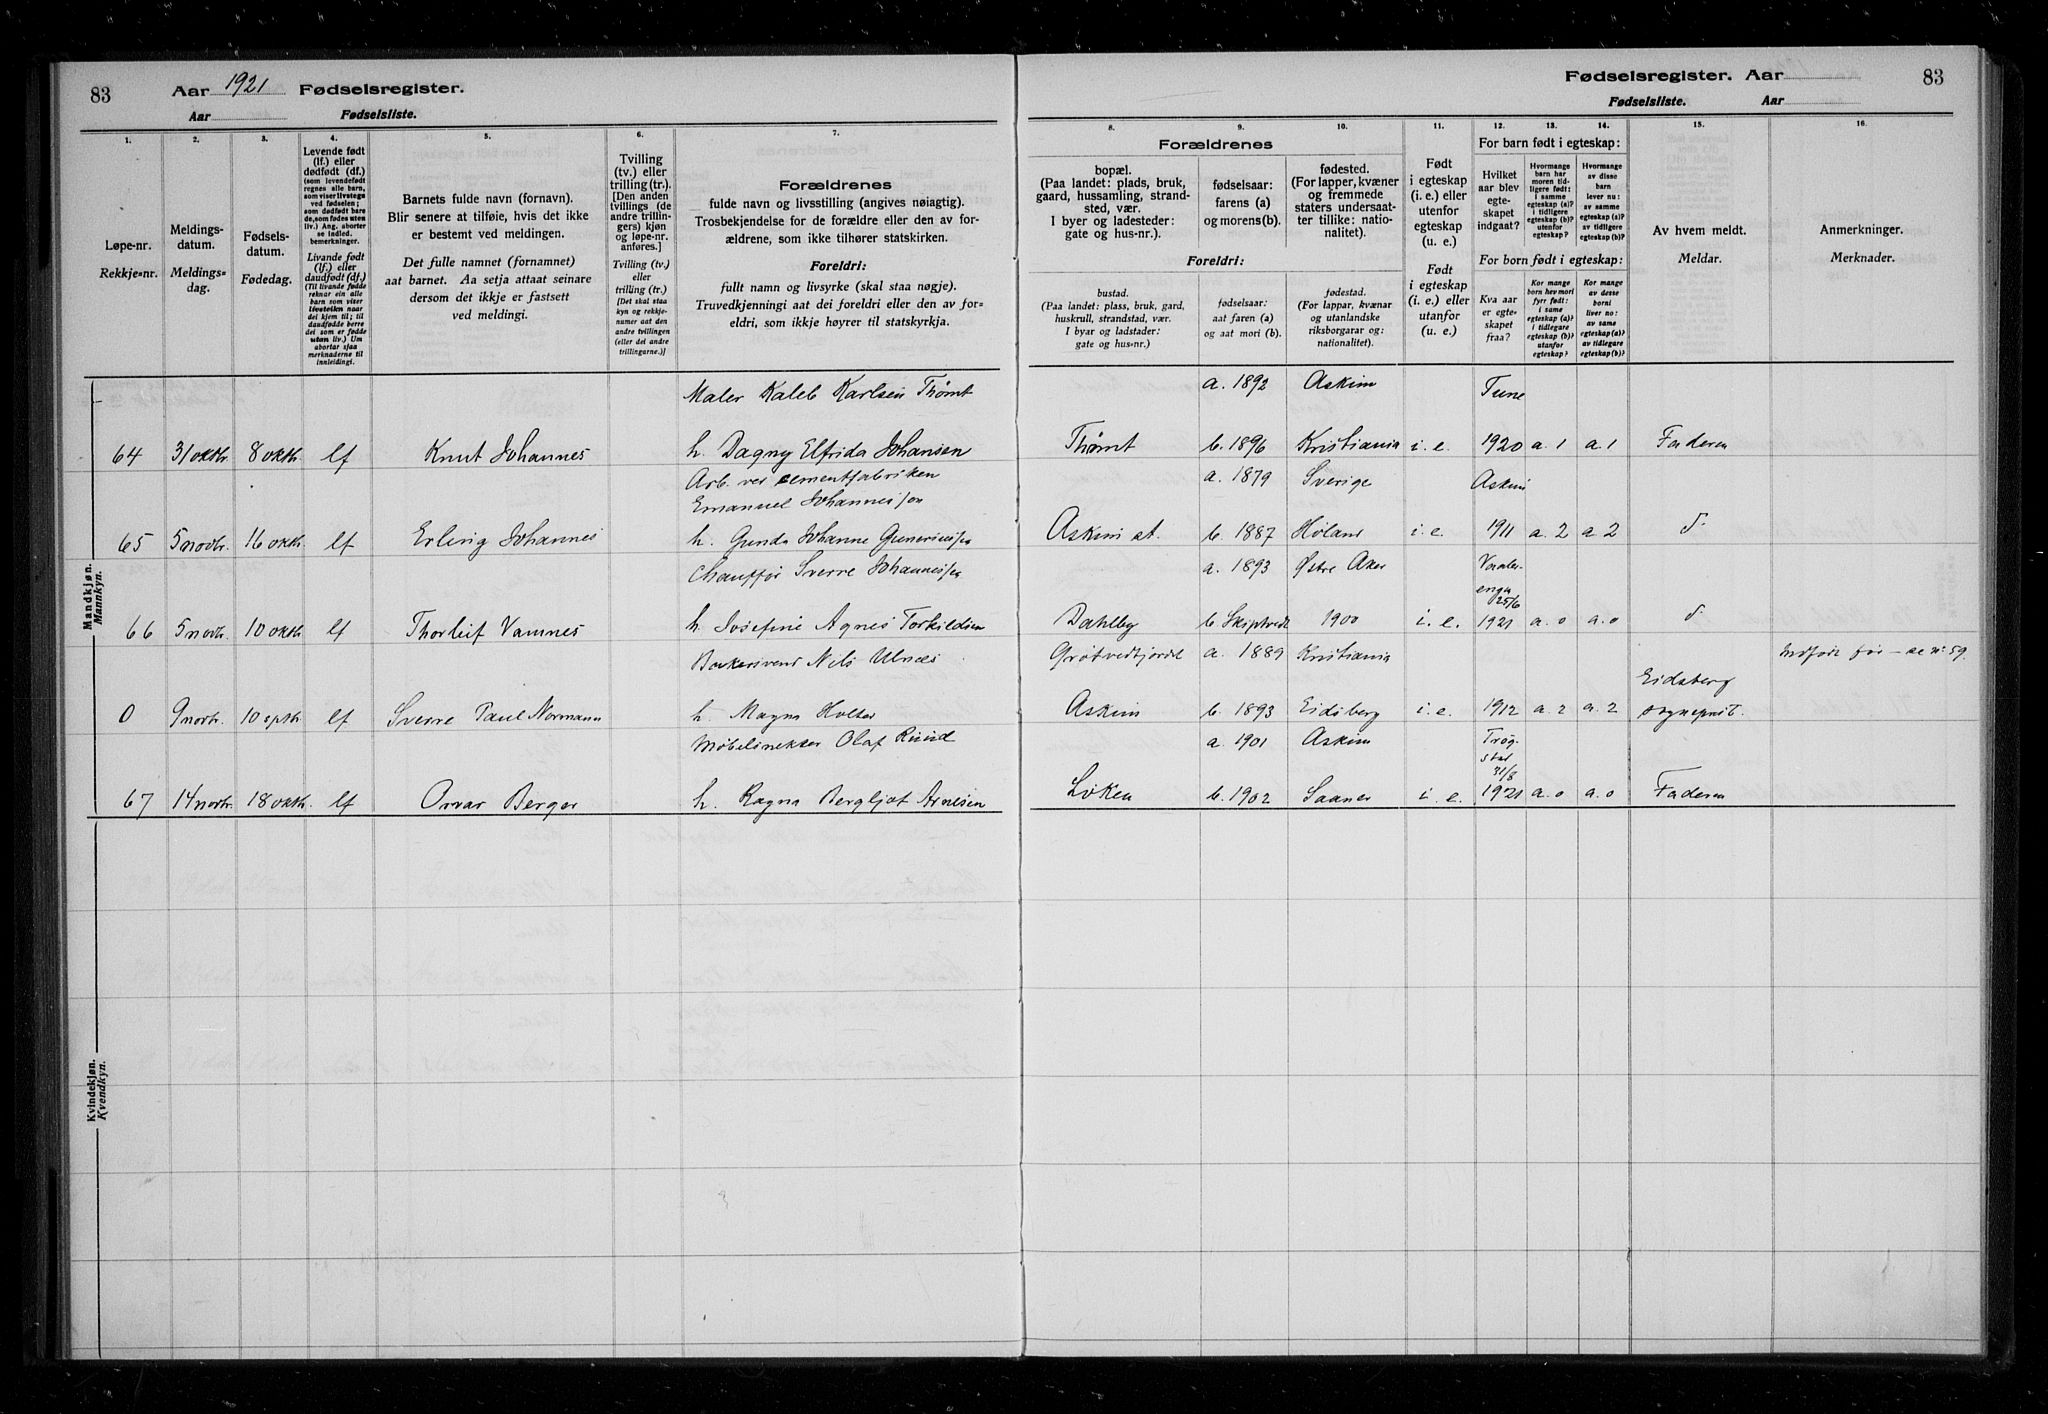 83
Aar 1921 Fødselsregister.
Aar Fødselsliste.
1.
2.
3.
4.
5.
6.
7.
Løpe-nr.
Rekkje-nr.
Meldings-
datum.
Meldings-
dag.
Fødsels-
datum.
Fødedag.
Levende født
(lf.) eller
dødfødt (df.)
(som levendefødt
regnes alle barn,
som viser livstegn
ved fødselen;
som dødfødt bare
de, som fødes uten
liv.) Ang. aborter
se indled.
bemerkninger.
Livande født
(lf.) eller
daudfødt (df.)
(Til livande fødde
reknar ein alle
barn som viser
livsteikn naar
dei kjem til; til
daudfødde berre
dei som er fødde
utan liv.) Um
abortar sjaa
merknaderne til
innleidingi.
Barnets fulde navn (fornavn).
Blir senere at tilføie, hvis det ikke
er bestemt ved meldingen.
Det fulle namnet (fornamnet)
aat barnet. Aa setja attaat seinare
dersom det ikkje er fastsett
ved meldingi.
Tvilling
(tv.) eller
trilling (tr.).
[Den anden
tvillings (de
andre trillin-
gers) kjøn
og løpe-nr.
anføres.]
Tvilling (tv.)
eller
trilling (tr.)
[Det skal staa
kyn og rekkje-
numer aat den
andre tvillingen
(eller dei andre
trillingarne.)]
Forældrenes
fulde navn og livsstilling (angives nøiagtig).
Trosbekjendelse for de forældre eller den av for-
ældrene, som ikke tilhører statskirken.
Foreldri:
fullt namn og livsyrke (skal staa nøgje).
Truvedkjenningi aat dei foreldri eller den av for-
eldri, som ikkje høyrer til statskyrkja.
Mandkjøn.
Mannkyn.
Maler Kaleb Karlsen Thømt
64 31 oktbr. 8 oktbr. lf Knut Johannes h. Dagny Elfrida Johansen
Arb. ved cementfabriken
Emanuel Johannessen
65 5 novbr. 16 oktbr. lf Erling Johannes h. Gunda Johanne Gunerius/sen
Chauffør Sverre Johannessen
66 5 novbr. 10 oktbr. lf Thorleif Vamnes h. Josefine Agnes Torkildsen
Bakersvend Nils Ulnæs
0 9 novbr. 10 sptbr. lf Sverre Paul Normann h. Magna Holter
Møbelsnekker Olaf Ruud
67 14 novbr. 18 oktbr. lf Orvar Berger h. Ragna Bergljot Arnesen
Kvindekjøn.
Kvendkyn.
Fødselsregister. Aar
83
Fødselsliste. Aar
8.
9.
10.
11.
12.
13.
14.
15.
16.
Forældrenes
bopæl.
(Paa landet: plads, bruk,
gaard, hussamling, strand-
sted, vær.
I byer og ladesteder:
gate og hus-nr.).
fødselsaar:
farens (a)
og morens (b).
fødested.
(For lapper, kvæner
og fremmede
staters undersaat-
ter tillike: natio-
nalitet).
Foreldri:
bustad.
(Paa landet: plass, bruk, gard,
huskrull, strandstad, vær.
I byar og ladstader:
gate og hus-nr.)
fødselsaar:
aat faren (a)
og aat mori (b).
fødestad.
(For lappar, kvænar
og utanlandske
riksborgarar og:
nationalitet).
Født
i egteskap
(i. e.) eller
utenfor
egteskap
(u. e.)
Født
i egteskap
(i. e.) eller
utanfor
(u. e.)
For barn født i egteskap:
Hvilket
aar blev
egte-
skapet
indgaat?
Hvormange
barn har
moren tid-
ligere født:
i samme
egteskap (a)?
i tidligere
egteskap (b)?
utenfor
egteskap?
Hvormange
av disse
barn
lever nu:
av samme
egteskap (a)?
av tidligere
egteskap (b)?
For born født i egteskap:
Kva aar
er egte-
skapet
fraa?
Kor mange
born hev mori
fyrr født:
i same
egteskap (a)?
i tidlegare
egteskap (b)?
utanfor
egteskap?
Kor mange
av desse
borni
liver no:
av same
egteskap (a)?
av tidlegare
egteskap (b)?
Av hvem meldt.
Meldar.
Anmerkninger.
Merknader.
a. 1892 Askim Tune
Thømt b. 1896 Kristiania i. e. 1920 a. 1 a. 1 Faderen
a. 1879 Sverige Askim
Askim st. b. 1887 Høland i. e. 1911 a. 2 a 2 d.
a. 1893 Østre Aker Vaaler-
enga
25/6
Dahlby b. Skiptvedt 1900 i. e. 1921 a. 0 a. 0 d
Grøtvedtfjordet a. 1889 Kristiania Indført før – se nr. 59.
Eidsberg
Askim b. 1893 Eidsberg i. e. 1912 a. 2 a. 2 sogneprest.
a. 1901 Askim Trøg-
stad
31/8
Løken b. 1902 Saaner i. e. 1921 a. 0 a. 0 Faderen